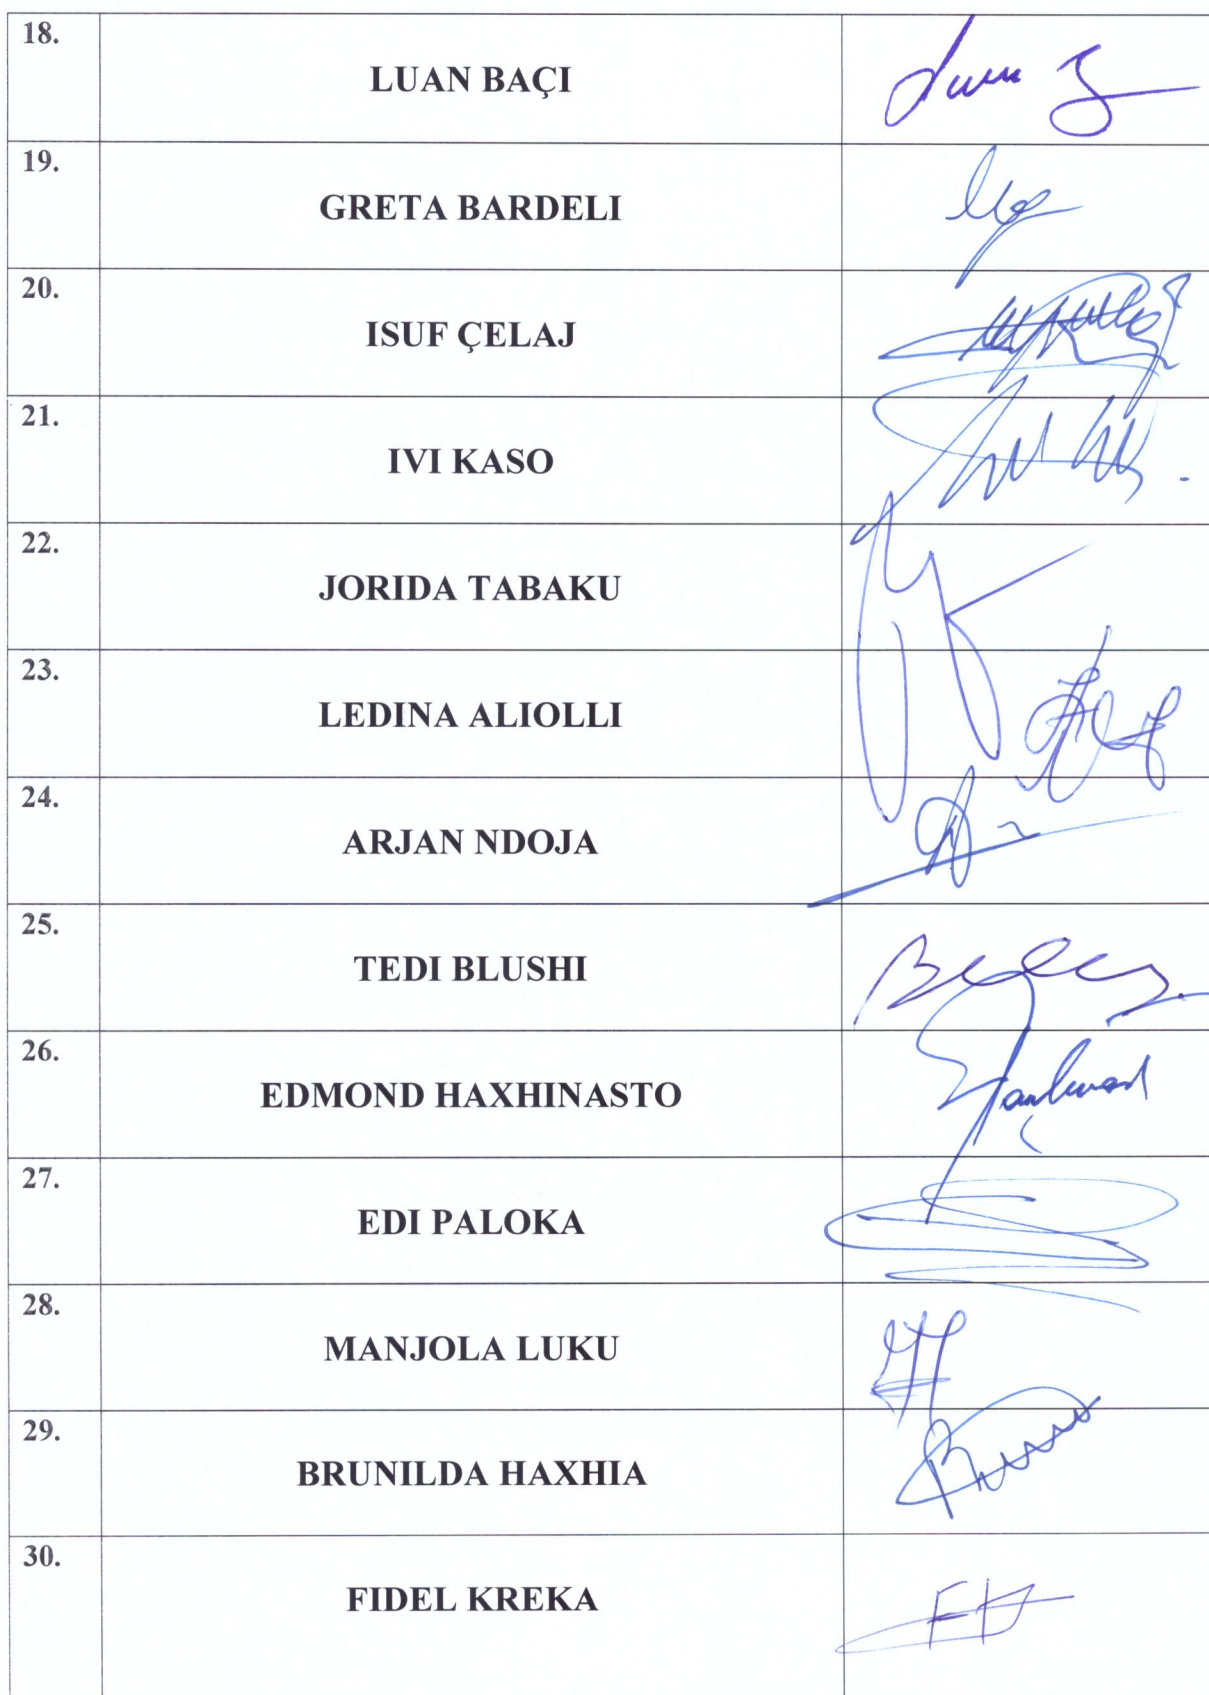 18.
LUAN BAÇI
19.
GRETA BARDELI
20.
ISUF ÇELAJ
21.
IVI KASO
22.
JORIDA TABAKU
23.
LEDINA ALIOLLI
24.
ARJAN NDOJA
25.
TEDI BLUSHI
26.
EDMOND HAXHINASTO
27.
EDI PALOKA
28.
MANJOLA LUKU
29.
BRUNILDA HAXHIA
30.
FIDEL KREKA